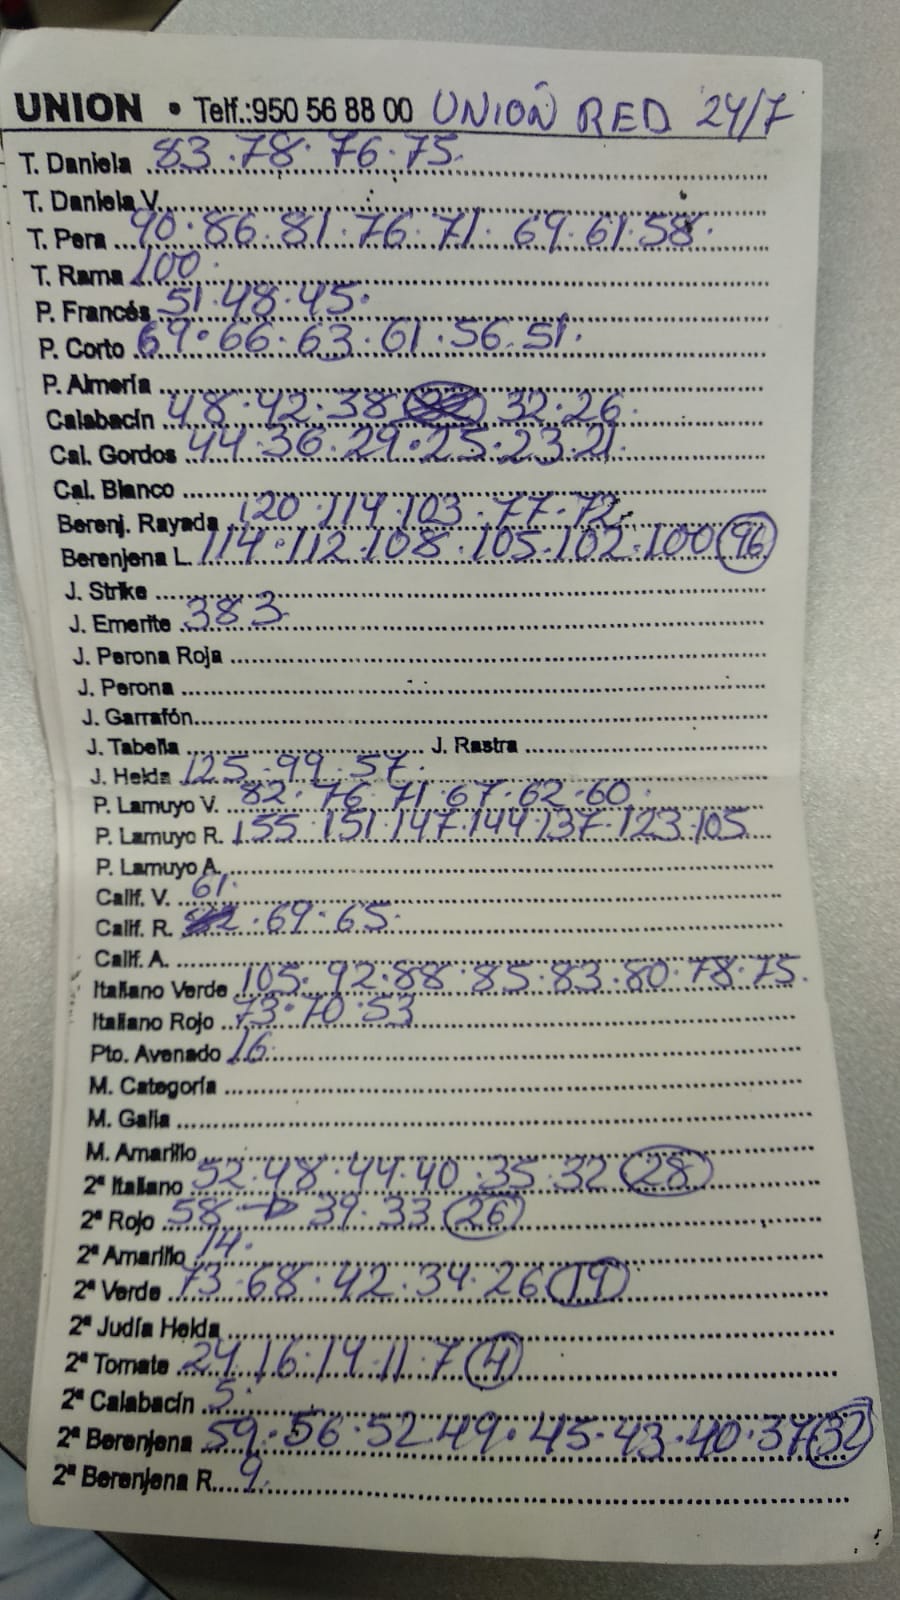 UNION • Telf.:950 56 88 00 UNION RED 24/7
T. Daniela 83.78.76.75.
T. Daniela V.
T. Pera 90.86.81.76.71.69.61.58.
T. Rama 100.
P. Francés 51.48.45.
P. Corto 69.66.63.61.56.51.
P. Almería
Calabacín 48.42.38 32.26.
Cal. Gordos 44.36.29.25.23.21.
Cal. Blanco
Berenj. Rayada 120.114.103.77.72.
Berenjena L. 114.112.108.105.102.100 96
J. Strike
J. Emerite 383.
J. Perona Roja
J. Perona
J. Garrafón
J. Tabella J. Rastra
J. Helda 125.99.57.
P. Lamuyo V. 82.76.71.67.62.60.
P. Lamuyo R. 155.151.147.144.137.123.105
P. Lamuyo A.
Calif. V. 61.
Calif. R. 69.65.
Calif. A.
Italiano Verde 105.92.88.85.83.80.78.75.
Italiano Rojo 73.70.53
Pto. Avenado 16.
M. Categoría
M. Galia
M. Amarillo
2ª Italiano 52.48.44.40.35.32 28
2ª Rojo 58 → 39.33 26
2ª Amarillo 14.
2ª Verde 73.68.42.34.26 19
2ª Judía Helda
2ª Tomate 24.16.14.11.7 4
2ª Calabacín 5.
2ª Berenjena 59.56.52.49.45.43.40.37 32
2ª Berenjena R. 9.